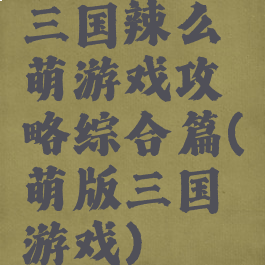 三国辣么
萌游戏攻
略综合篇(
萌版三国
游戏)